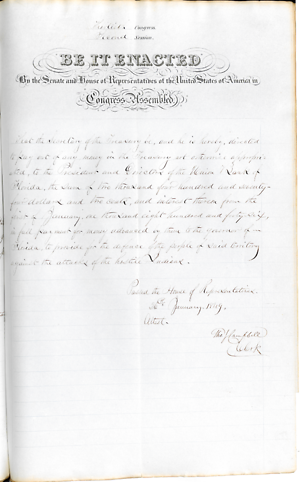 Thirtieth Congress
Second Session
BE IT ENACTED
By the Senate and House of Representatives of the United States of America in
Congress Assembled,
That the Secretary of the Treasury be, and he is hereby, directed
to pay out of any money in the Treasury not otherwise appropri-
ated, to the President and Directors of the Union Bank of
Florida, the sum of two thousand four hundred and seventy
four dollars and ten cents, and interest thereon from the
first of January, one thousand eight hundred and forty,
in full payment for money advanced by them to the governor of
Florida to provide for the defence of the people of said Territory
against the attacks of the hostile Indians.
Passed the House of Representatives
January, 1849.
Attest.
Tho J Campbell
Clerk